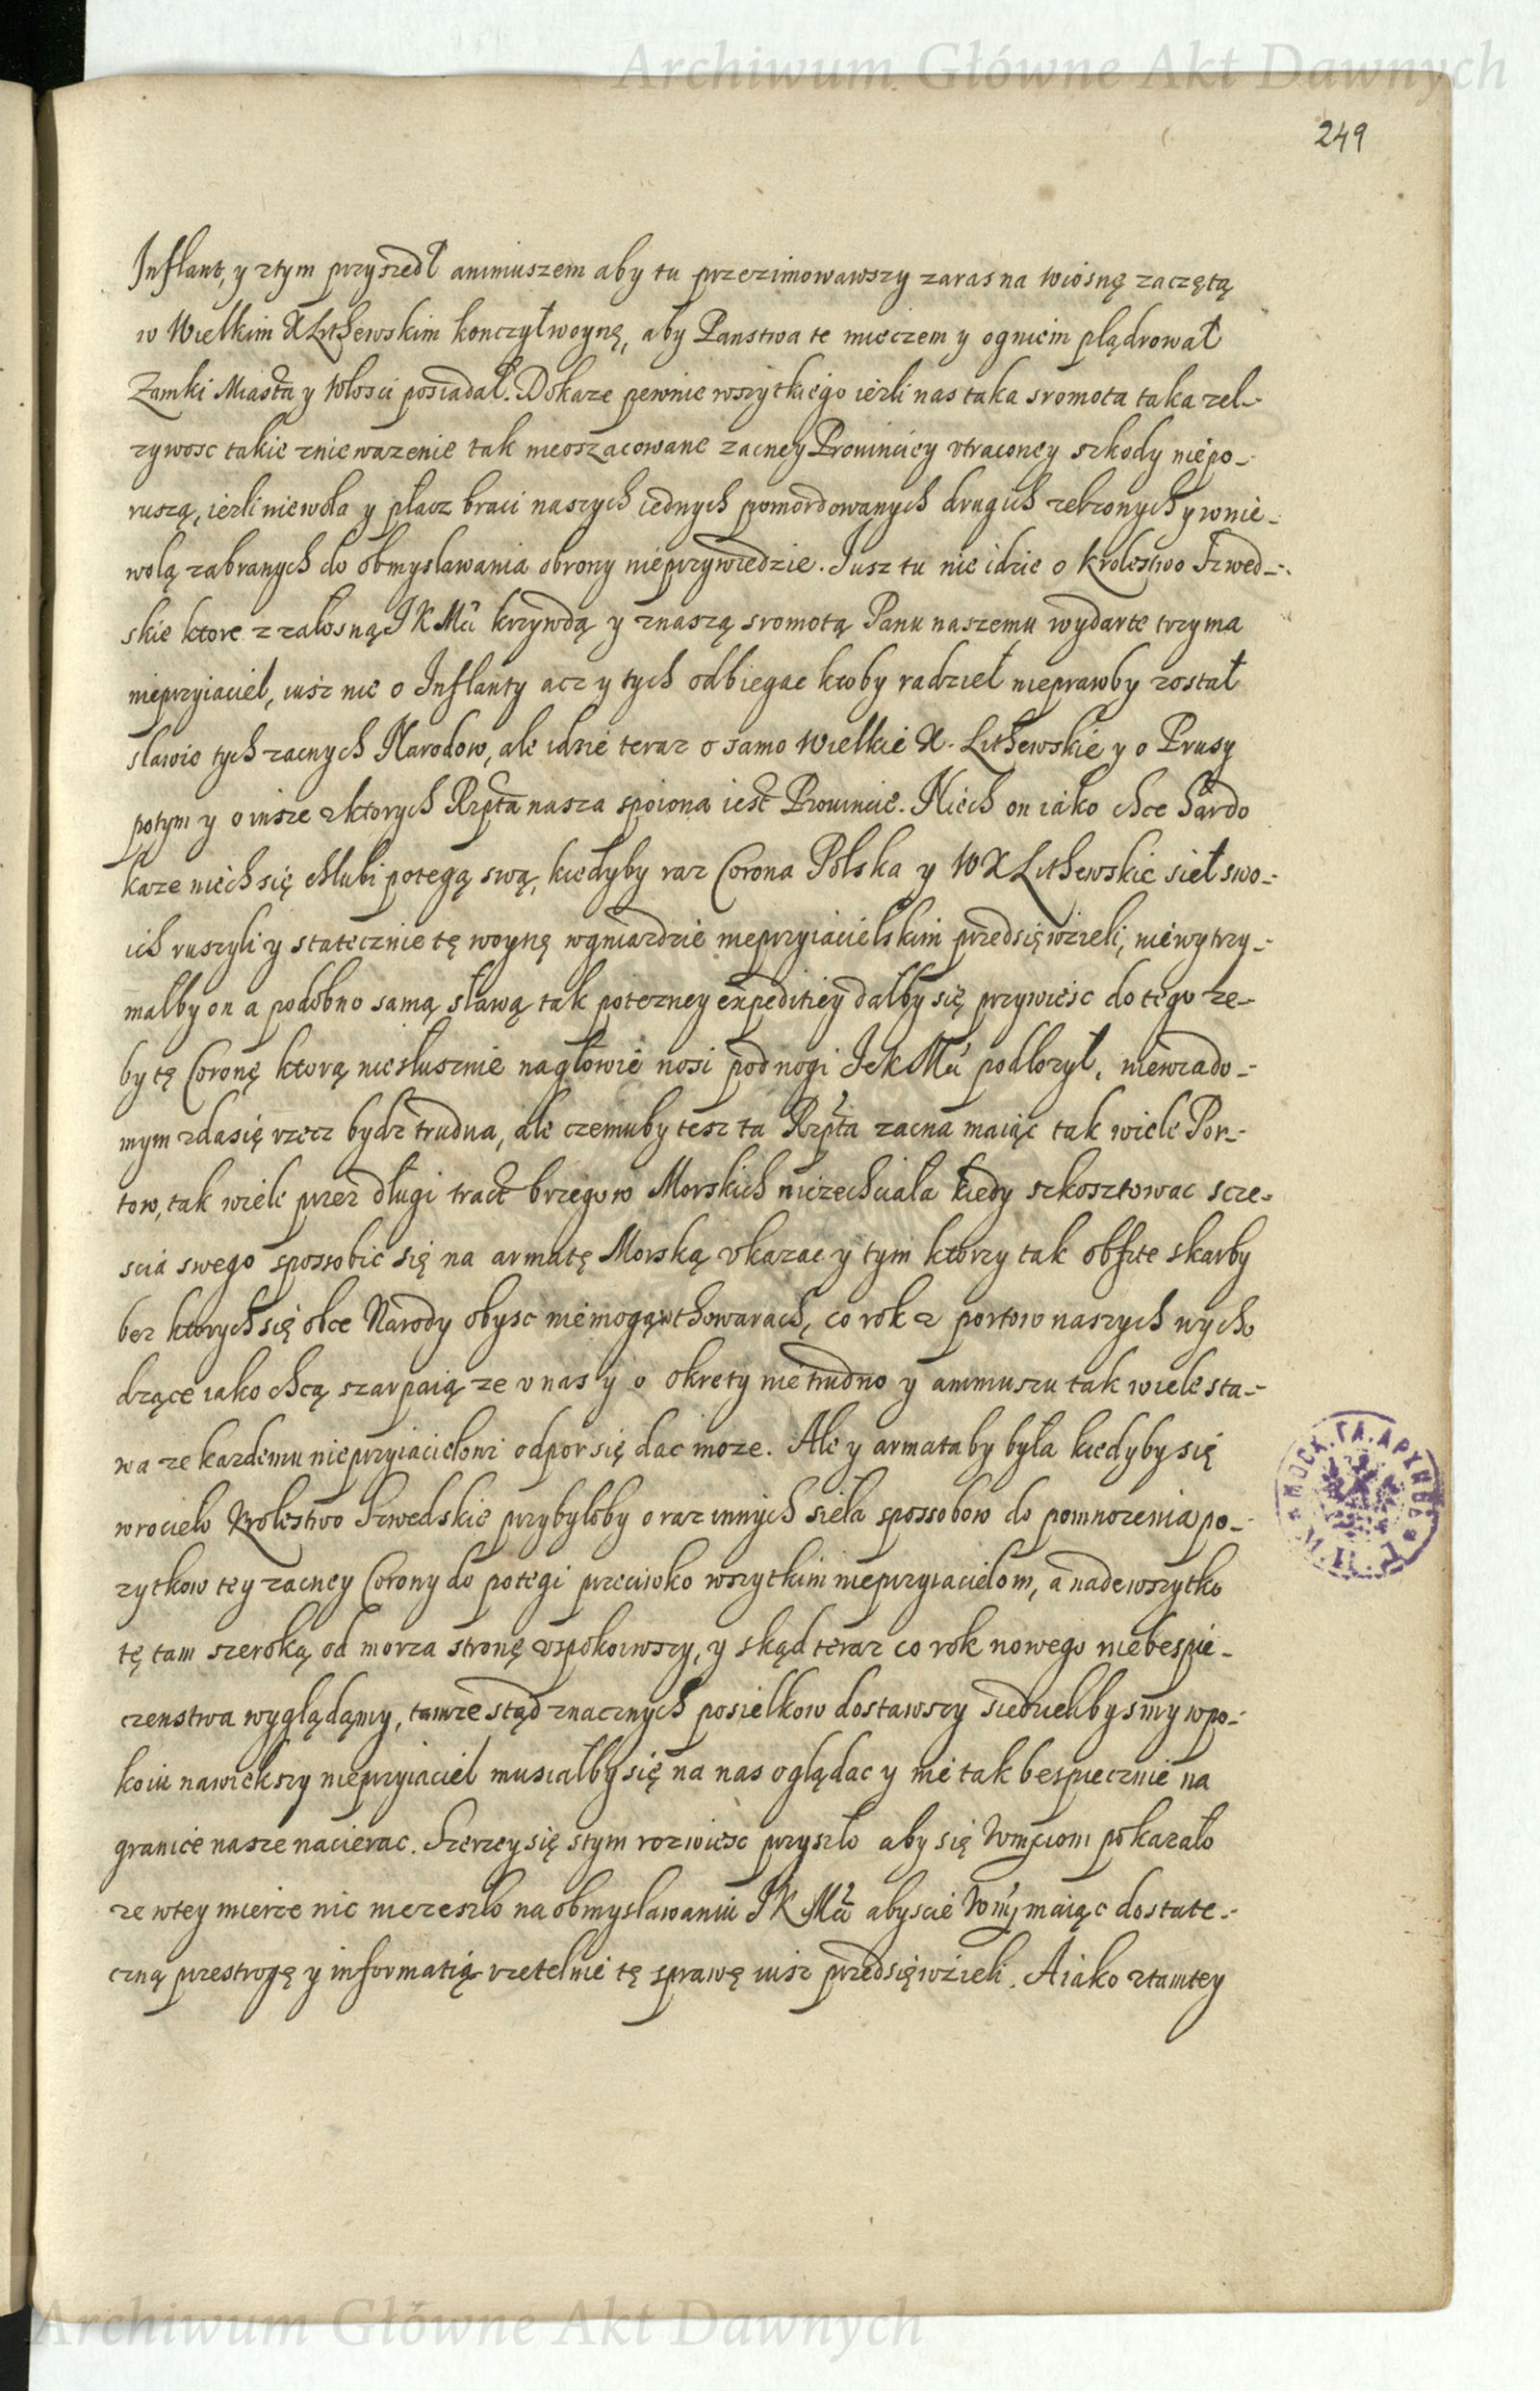 Archiwum Główne Akt Dawnych
249
Inflant, y ztym przyszedł animuszem aby tu przezimowawszy zaras na wiosnę zaczętą
w Wielkim X Lithewskim konczył woynę, aby Panstwa te mieczem y ogniem plądrował
Zamki Miasta y Włosci posiadał. Dokaze pewnie wszytkiego iezli nas taka sromota taka zel-
zywosc takie zniewazenie tak nieoszacowane zacney Prowinciey vtraconey szkody niepo-
ruszą, iezli niewola y płacz braci naszych iednych pomordowanych drugich zebronych y wnie-
wolą zabranych do obmyslawania obrony nieprzywiedzie. Jusz tu nie idzie o krolestwo Szwed-
skie ktore z załosną J K Mci krzywdą y znaszą sromotą Panu naszemu wydarte trzyma
nieprzyiaciel, iusz nie o Inflanty acz y tych odbiegac ktoby radzieł nieprawby został
sławie tych zacnych Narodow, ale idzie teraz o samo Wielkie X. Lithewskie y o Prusy
potym y o insze z ktorych Rzpta nasza spoiona iest Prowincie. Niech on iako chce hardo
kaze niech się chlubi potegą swą, kiedyby raz Corona Polska y W X Lithewskie sieł swo-
ich ruszyli y statecznie tę woynę wgniazdzie nieprzyiacielskim przedsięwzieli, niewytrzy-
małby on a podobno samą sławą tak potezney expeditiey dałby się przywiesc do tego ze-
by tę Coronę ktorą niesłusznie nagłowie nosi pod nogi Jek Mci podłozył, niewiado-
mym zdasię rzecz bydz trudna, ale czemuby tesz ta Rzpta zacna maiąc tak wiele Por-
tow, tak wiele przez długi tract brzegow Morskich niezechciała kiedy szkosztowac scze-
scia swego spossobic się na armatę Morską vkazac y tym ktorzy tak obfite skarby
bez ktorych się obce Narody obysc niemogą w thowarach, co rok z portow naszych wycho
dzące iako chcą szarpaią ze v nas y o okrety nie trudno y animuszu tak wiele sta-
wa ze kazdemu nieprzyiacielowi odpor się dac moze. Ale y armata by była kiedyby się
wrocieło Krolestwo Szwedskie przybyłoby oraz innych sieła spossobow do pomnozenia po-
zytkow tey zacney Corony do potegi przeciwko wszytkim nieprzyiaciełom, a nadewszytko
tę tam szeroką od morza stronę vspokoiwszy, y skąd teraz co rok nowego niebespie-
czenstwa wyglądąmy, tamze stąd znacznych posielkow dostawszy siedzielibysmy wpo-
koiu nawiekszy nieprzyiaciel musiałby się na nas oglądac y nie tak bespiecznie na
granice nasze nacierac. Szerzey się stym rozwiesc przyszło aby się Wmciom pokazało
ze wtey mierze nic niezeszło na obmyslawaniu J K Mci abyscie Wm maiąc dostate-
czną przestrogę y informatią rzetelnie tę sprawę iusz przedsięwzieli. A iako ztamtey
Archiwum Główne Akt Dawnych